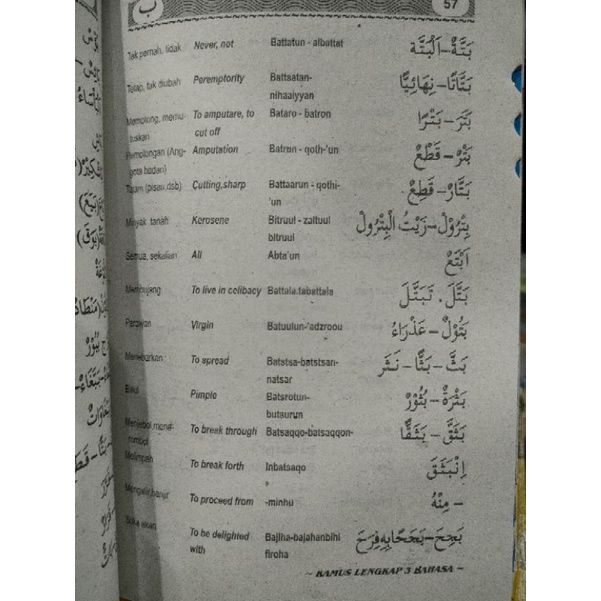 ب 57
Tak pernah, tidak Never, not Battatun - albattat بَتَّةٌ – اَلْبَتَّة
Tetap, tak diubah Peremptority Battaatan- بَتَاتًا – نِهَائِيًّا
nihaaiyyan
Memotong, memu- To amputare, to Bataro - batron بَتَرَ – بَتْرًا
tuskan cut off
Pemotongan (Ang- Amputation Batrun - qoth-'un بَتْرٌ – قَطْعٌ
gota badan)
Tajam (pisau,dsb) Cutting,sharp Battaarun - qothi- بَتَّارٌ – قَطِعٌ
'un
Minyak tanah Kerosene Bitruul - zaituul بِتْرُوْلٌ – زَيْتُ الْبِتْرُولْ
bitruul
Semua, sekalian All Abta'un اَبْتَعُ
Membujang To live in celibacy Battala.tabattala بَتَّلَ . تَبَتَّلَ
Perawan Virgin Batuulun-'adzroou بَتُوْلٌ – عَذْرَاءُ
Menebarkan To spread Batstsa-batstsan- بَثَّ – بَثًّا – نَثَرَ
natsar
Bisul Pimple Batsrotun- بَثْرَةٌ – بُثُوْرٌ
butsurun
Menjebol mene- To break through Batsaqqo-batsaqqon- بَثَقَ – بَثَقًا
rombol
Melimpah To break forth Inbatsaqo اِنْبَثَقَ
Mengalir,banjir To proceed from -minhu – مِنْهُ
Suka akan To be delighted Bajiha-bajahanbihi بَجِحَ – بَجَحًا بِهِ فَرِحَ
with firoha
~ KAMUS LENGKAP 3 BAHASA ~